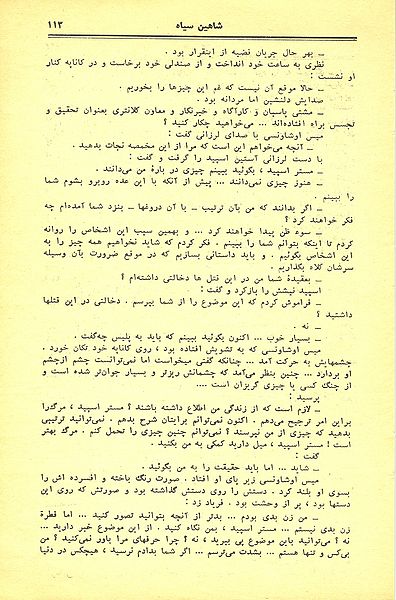 شاهین سیاه ۱۱۳
ـ بهر حال جریان قضیه از اینقرار بود .
نظری به ساعت خود انداخت و از صندلی خود برخاست و در کاناپه کنار
او نشست :
ـ حالا موقع آن نیست که غم این چیزها را بخوریم .
صدایش دلنشین اما مردانه بود .
ـ مشتی پاسبان و کارآگاه و خبرنگار و معاون کلانتری بعنوان تحقیق و
تجسس براه افتاده‌اند ... میخواهید چکار کنید ؟
میس اوشاونسی با صدای لرزانی گفت :
ـ آنچه میخواهم این است که مرا از این مخمصه نجات بدهید .
با دست لرزانی آستین اسپید را گرفت و گفت :
ـ مستر اسپید ، بگوئید ببینم چیزی در بارهٔ من می‌دانند .
ـ هنوز چیزی نمی‌دانند ... پیش از آنکه با این عده روبرو بشوم شما
را ببینم .
ـ اگر بدانند که من بآن ترتیب ـ با آن دروغها ـ بنزد شما آمده‌ام چه
فکر خواهند کرد ؟
ـ سوء ظن پیدا خواهند کرد ... و بهمین سبب این اشخاص را روانه
کردم تا اینکه بتوانم شما را ببینم . فکر کردم که شاید نخواهیم همه چیز را به
این اشخاص بگوئیم . و باید داستانی بسازیم که در موقع ضرورت بآن وسیله
سرشان کلاه بگذاریم .
ـ بعقیدهٔ شما من در این قتل ها دخالتی داشته‌ام ؟
اسپید نیشش را بازکرد و گفت :
ـ فراموش کردم که این موضوع را از شما بپرسم . دخالتی در این قتلها
داشتید ؟
ـ نه .
ـ بسیار خوب ... اکنون بگوئید ببینم که باید به پلیس چه‌گفت .
میس اوشاونسی که به تشویش افتاده بود ، روی کاناپه خود تکان خورد .
چشمهایش به حرکت آمد ... چنانکه گفتی میخواست اما نمی‌توانست چشم ازچشم
او بردارد ... چنین بنظر می‌آمد که چشمانش ریزتر و بسیار جوان‌تر شده است و
از چنگ کسی یا چیزی گریزان است ....
پرسید :
ـ لازم است که از زندگی من اطلاع داشته باشند ؟ مستر اسپید ، مرگ‌را
براین امر ترجیح می‌دهم . اکنون نمی‌توانم برایتان شرح بدهم . نمی‌توانید ترتیبی
بدهید که چیزی از من نپرسند ؟ نمی‌توانم چنین چیزی را تحمل کنم . مرگ بهتر
است ! مستر اسپید ، میل دارید کمکی به من بکنید .
گفت :
ـ شاید ... اما باید حقیقت را به من بگوئید .
میس اوشاونسی زیر پای او افتاد . صورت رنگ باخته و افسرده اش را
بسوی او بلند کرد . دستش را روی دستش گذاشته بود و صورتش که روی این
دستها بود ، پر از وحشت بود . فریاد زد :
ـ من زن بدی بودم ... بدتر از آنچه بتوانید تصور کنید ... اما فطرة
زن بدی نیستم ... مستر اسپید ، بمن نگاه کنید . از این موضوع خبر دارید ...
نه ؟ می‌توانید باین موضوع پی ببرید ، نه ؟ چرا حرفهای مرا باور نمی‌کنید ؟ من
بی‌کس و تنها هستم ... بشدت می‌ترسم ... اگر شما بدادم نرسید ، هیچکس در دنیا